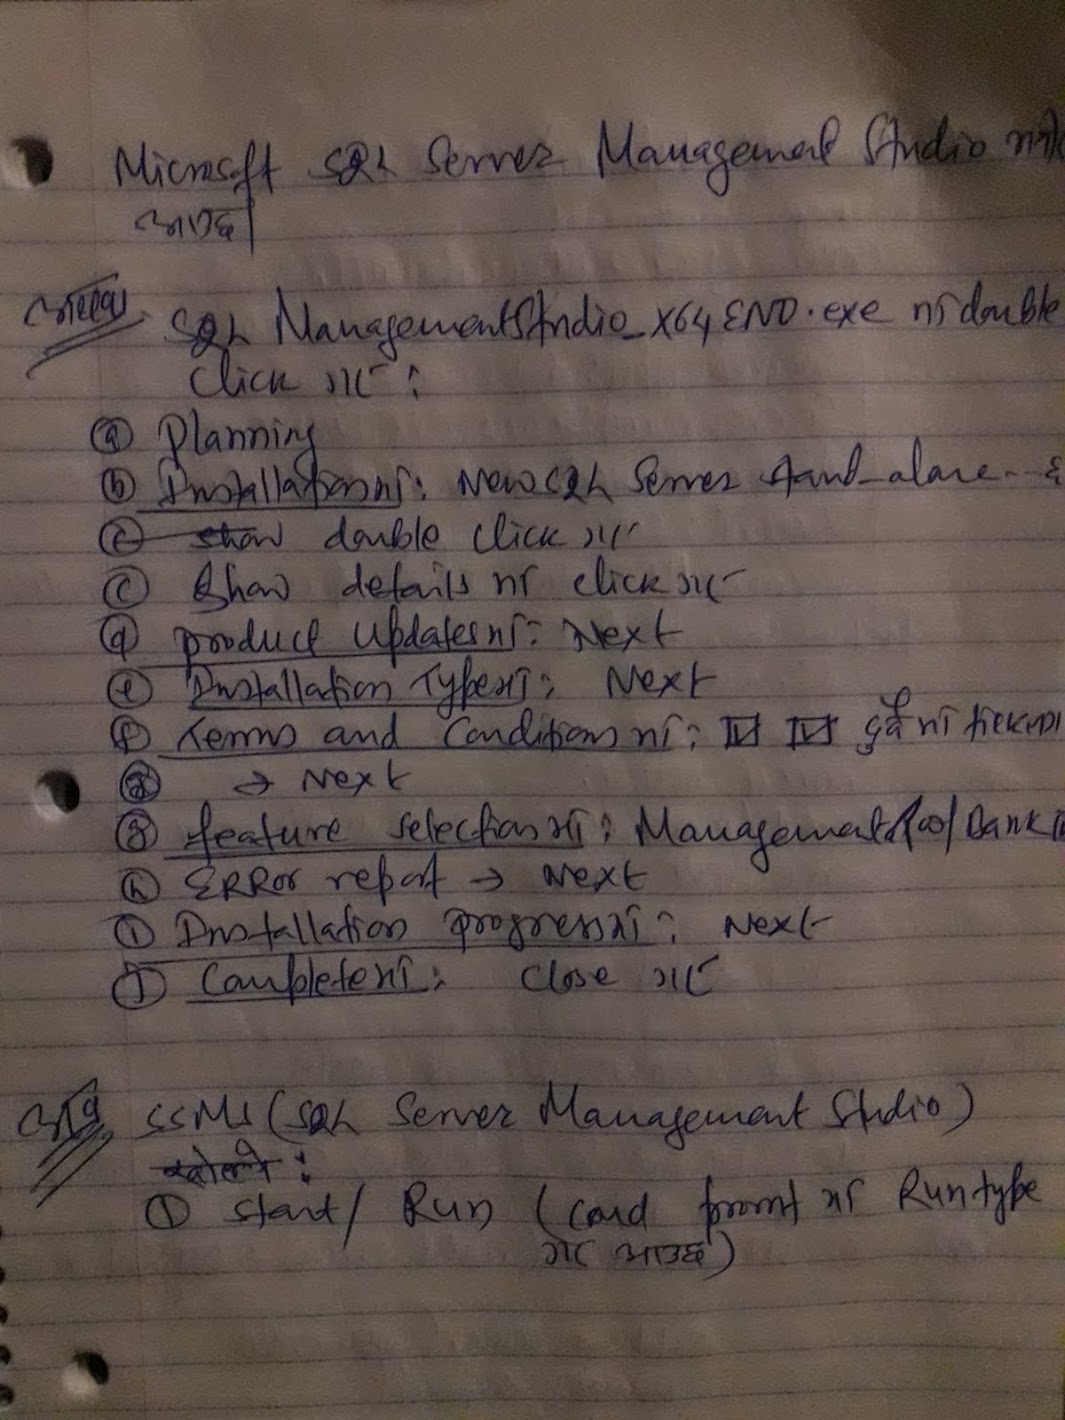 Microsoft SQL Server Management Studio
आउछ।
SQL ManagementStudio_X64 ENU.exe मा double
Click गर्ने :
ⓐ Planning
ⓑ Installation मा: New SQL Server stand-alone---
ⓒ show double click गर्ने
ⓒ Show details मा click गर्ने
ⓓ product Updates मा: Next
ⓔ Installation Type मा: Next
ⓕ Terms and Conditions मा: ☑ ☑ दुवै मा tick
→ Next
ⓖ feature selection मा: Management Tool
ⓗ ERRor report → Next
ⓘ Installation progress मा: Next
ⓙ Complete मा: Close गर्ने
SSMS (SQL Server Management Studio)
खोल्ने :
① start/ Run (cmd promt मा Run type
गरे आउछ)